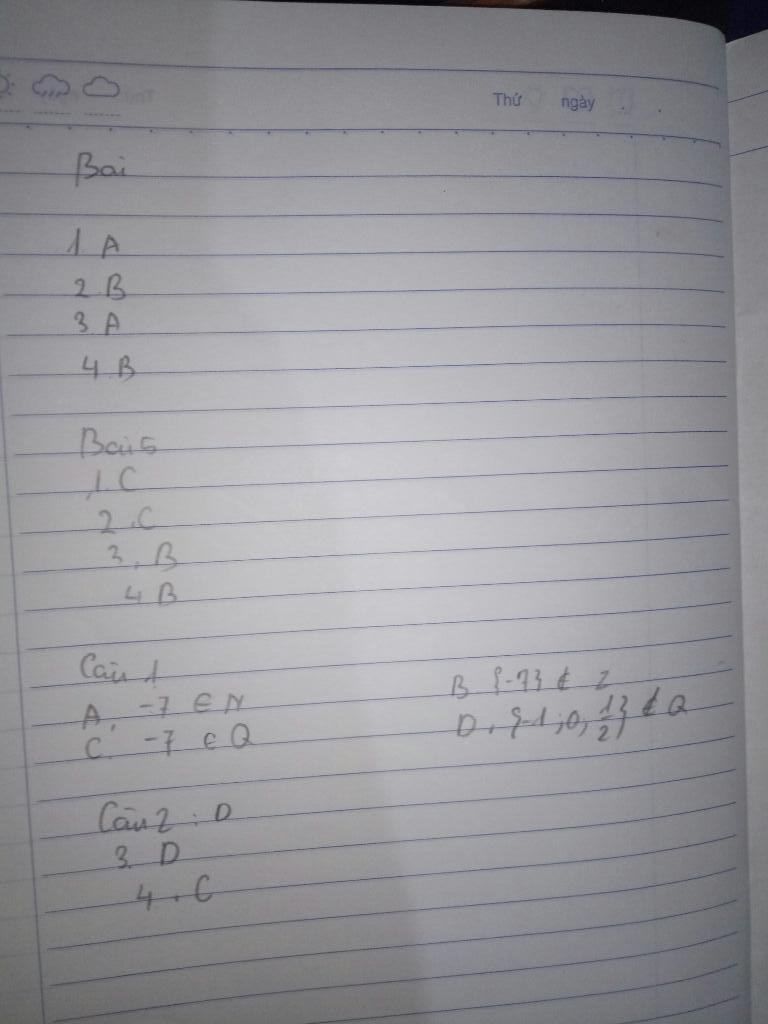 Thứ ngày
Bài
1 A
2 B
3 A
4 B
Bài 5
1. C
2. C
3. B
4 B
Câu 1
A. -7 ∈ N B {-7} ⊄ Z
C. -7 ∈ Q D. {-1; 0, 1/2} ⊄ Q
Câu 2: D
3. D
4. C